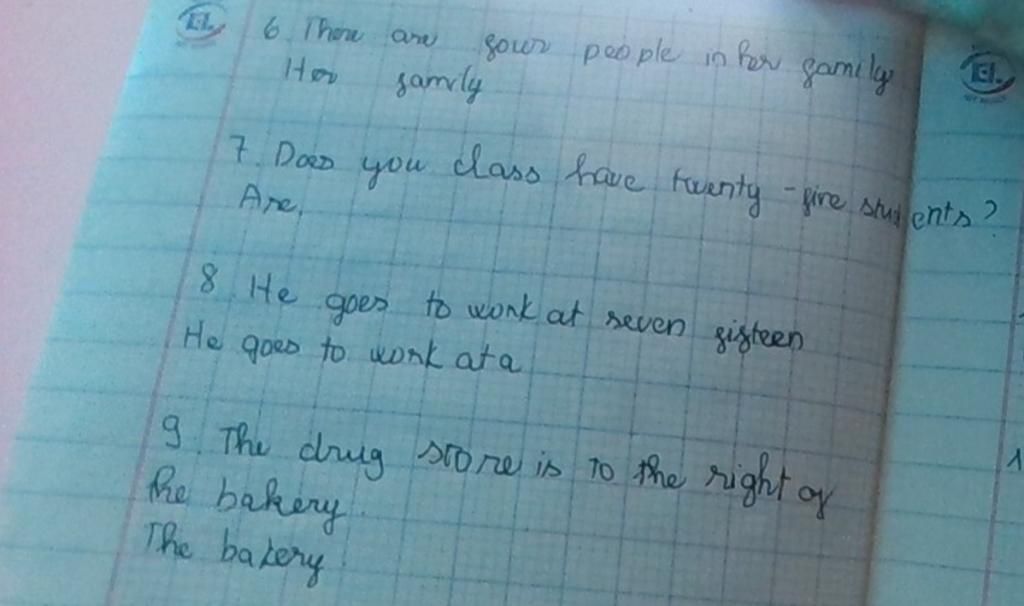 EL
6. There are four people in her family
Her family
EL
7. Does you class have twenty-five students?
Are,
8. He goes to work at seven fifteen
He goes to work at a
9. The drug store is to the right of
the bakery.
The bakery
1